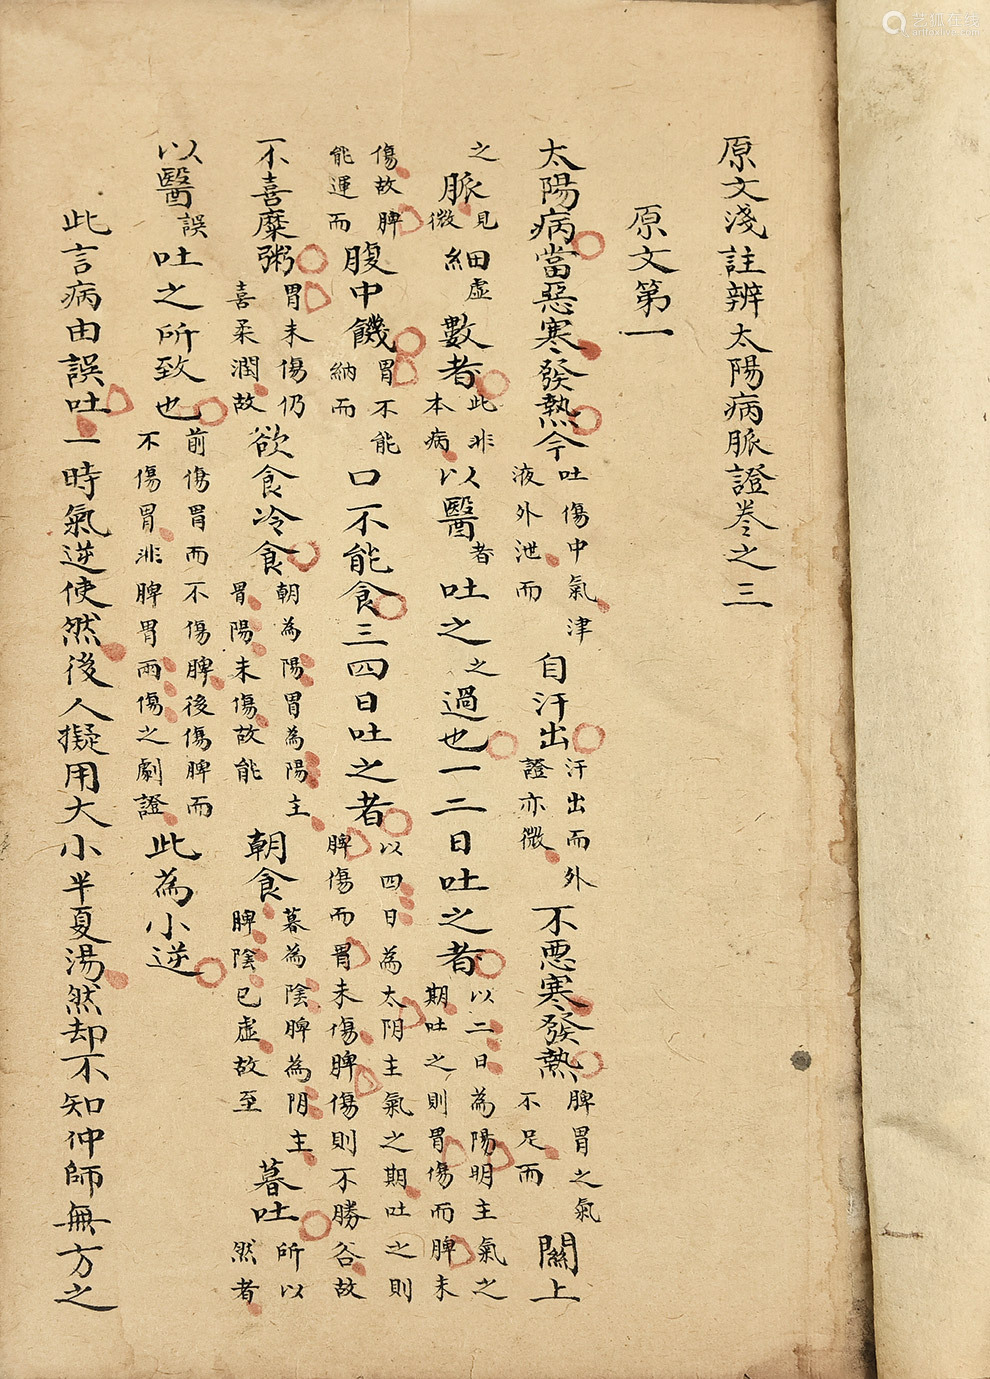 原文淺註辨太陽病脈證卷之三
原文第一
太陽病當惡寒發熱今吐傷中氣津液外泄而自汗出汗出而外證亦微不惡寒發熱脾胃之氣不足而關上
之脈見微細虛數者此非本病以醫者吐之之過也一二日吐之者以二日為陽明主氣之期吐之則胃傷而脾未
傷故脾能運而腹中饑胃不能納而口不能食三四日吐之者以四日為太阴主氣之期吐之則脾傷而胃未傷脾傷則不勝谷故
不喜糜粥胃未傷仍喜柔潤故欲食冷食朝為陽胃為陽主胃陽未傷故能朝食暮為陰脾為阴主脾陰已虛故至暮吐所以然者
以醫誤吐之所致也前傷胃而不傷脾後傷脾而不傷胃非脾胃兩傷之劇證此為小逆
此言病由誤吐一時氣逆使然後人擬用大小半夏湯然却不知仲師無方之
艺狐在线
artfoxlive.com